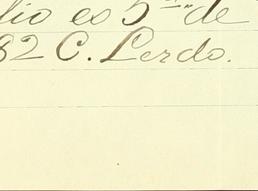 lio es 5ª de
82 C. Lerdo.